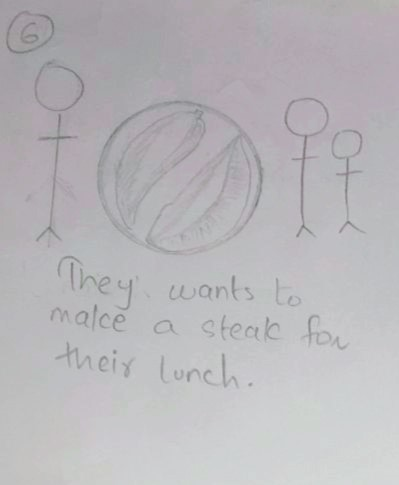 6
They wants to
make a steak for
their lunch.